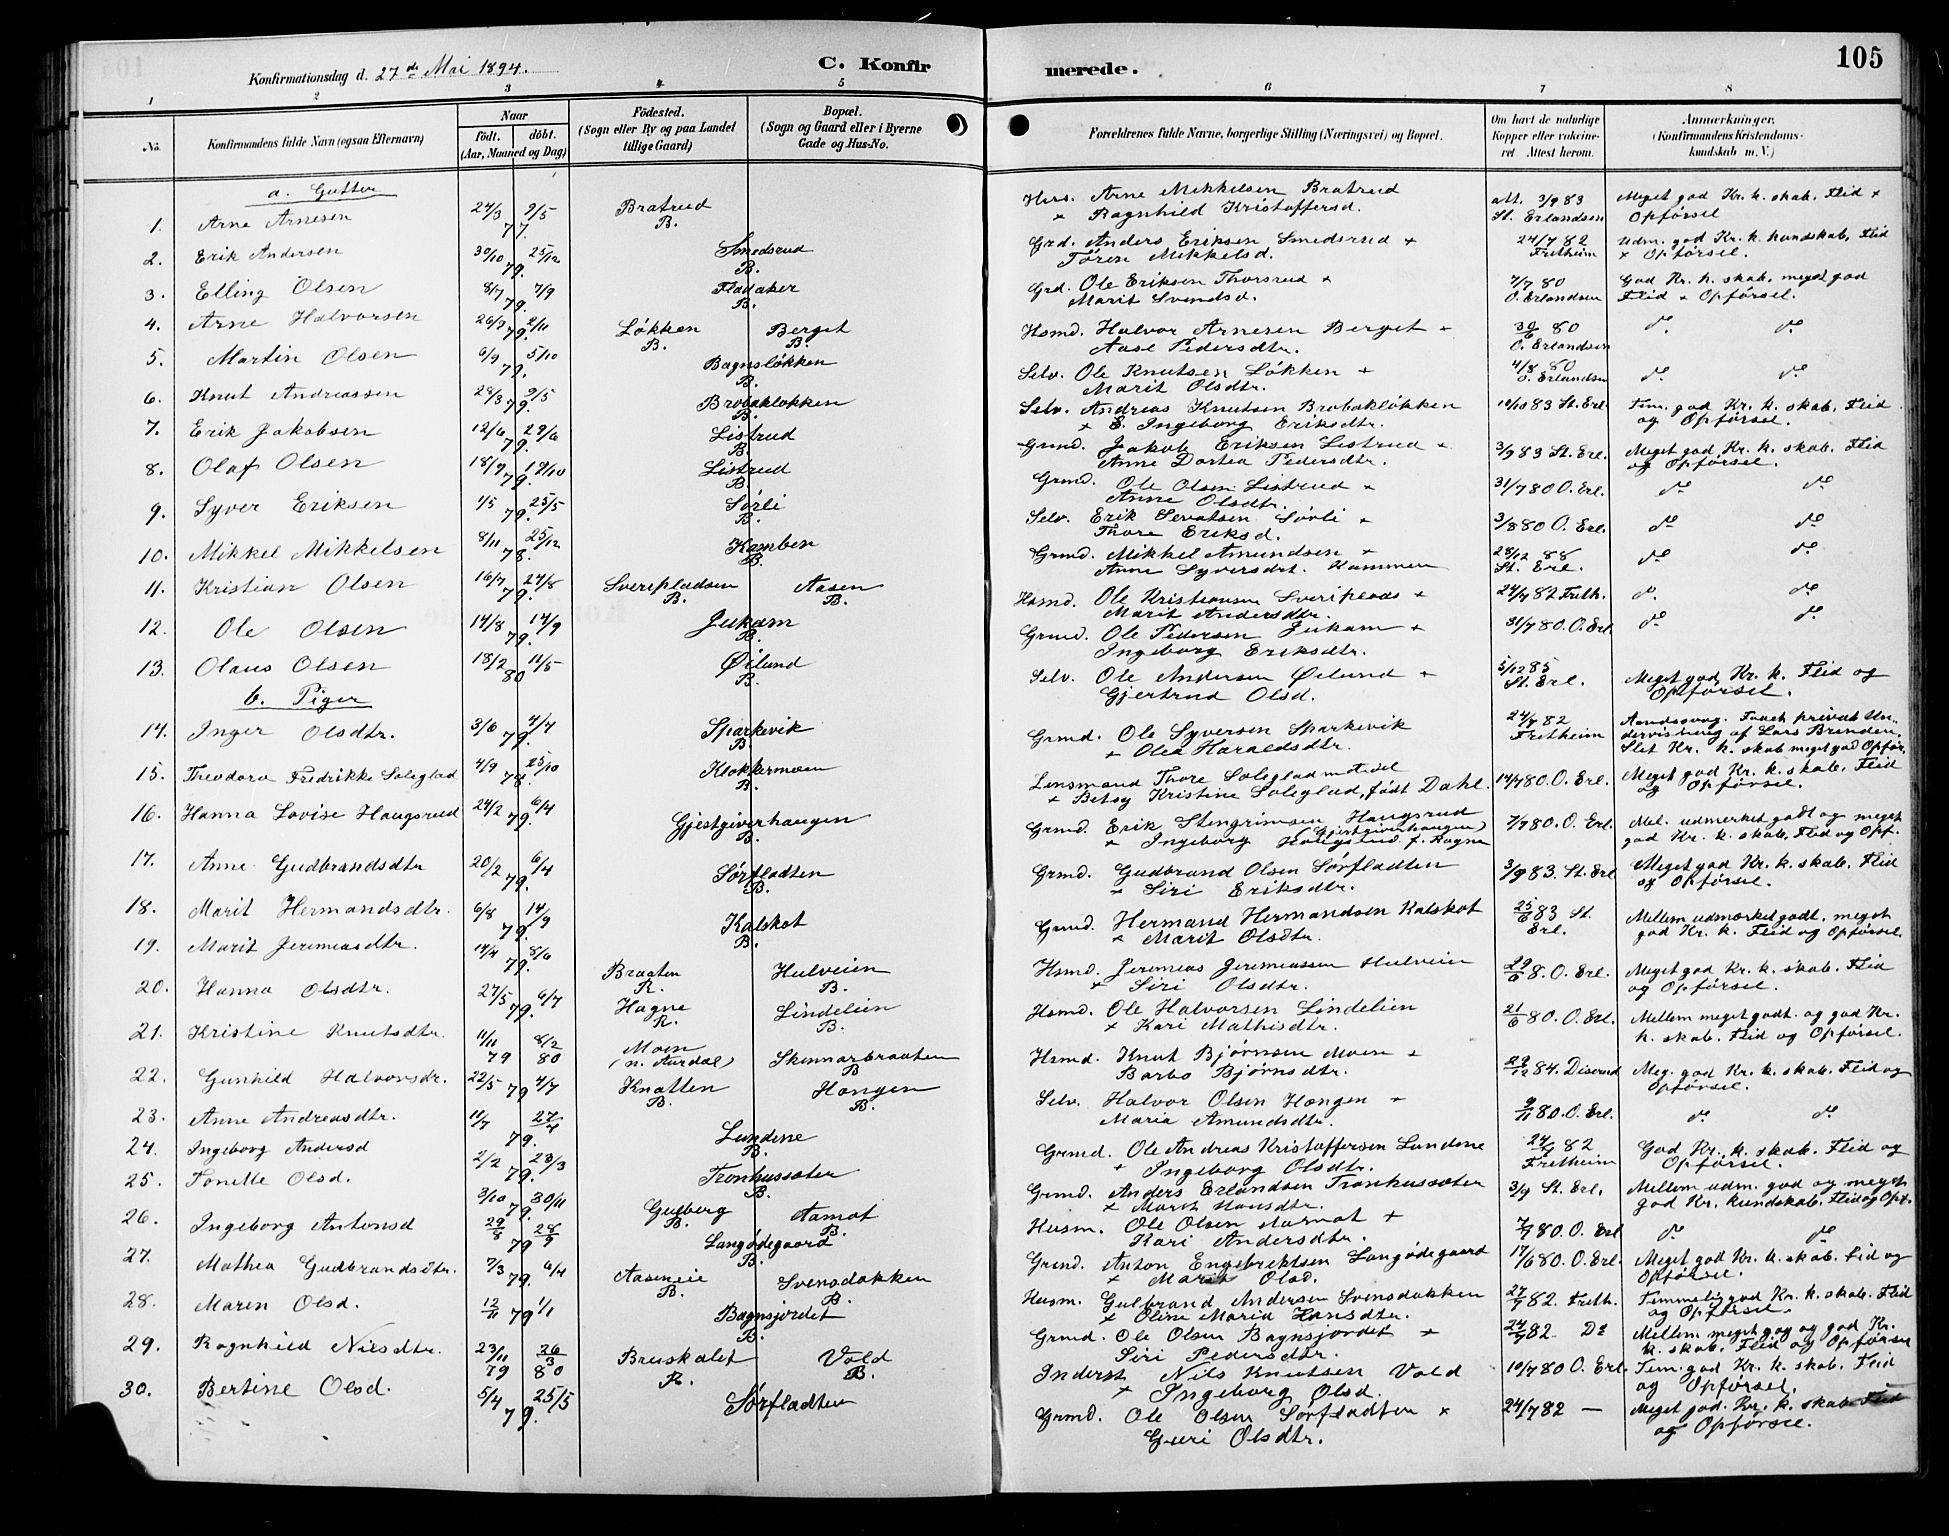 Konfirmationsdag d. 27de Mai 1894. C. Konfir merede. 105
1 2 3 4 5 6 7 8
No.
Konfirmandens fulde Navn (ogsaa Efternavn)
Naar
födt. döbt.
(Aar, Maaned og Dag)
Födested.
(Sogn eller By og paa Landet
tillige Gaard)
Bopæl.
(Sogn og Gaard eller i Byerne
Gade og Hus-No.
Forældrenes fulde Navne, borgerlige Stilling (Næringsvei) og Bopæl.
Om havt de naturlige
Kopper eller vakcine-
ret Attest herom.
Anmærkninger.
(Konfirmandens Kristendoms-
kundskab m. V.)
a. Gutter
1. Arne Arnesen 24/3 9/5 Bratrud Hus. Arne Mikkelsen Bratrud att. 3/9 83 Meget god Kr. k. skab. Flid +
77. B. + Ragnhild Kristoffersd. St. Erlandsen Opførsel
2. Erik Andersen 30/10 25/12 Smedsrud Grd. Anders Eriksen Smedsrud + 24/7 82 Udm. god Kr. k. kundskab, Flid
79. B. Tören Mikkelsd. Fretheim + Opførsel.
3. Elling Olsen 8/7 7/9 Fladaker Grd. Ole Eriksen Thorsrud + 7/7 80 God Kr. k. skab. meget god
79. B. Marit Svendsd. O. Erlandsen Flid + Opførsel.
4. Arne Halvorsen 26/9 2/11 Løkken Berget Hsmd. Halvor Arnesen Berget + 30/6 80 do do
79. B. B. Aase Pedersdtr. O. Erlandsen
5. Martin Olsen 6/9 5/10 Bagnsløkken Selv. Ole Knutsen Løkken + 4/8 80 do do
79. B. Marit Olsdtr. O. Erlandsen
6. Knut Andreassen 28/3 9/5 Brobakløkken Selv. Andreas Knutsen Brobakløkken 10/10 83 St. Erl. Tem. god Kr. k. skab, Flid
79. B. + E. Ingeborg Eriksdtr. og Opførsel.
7. Erik Jakobsen 12/6 29/6 Listrud Grmd. Jakob Eriksen Listrud + 3/9 83 St. Erl. Meget god Kr. k. skab. Flid
79. B. Anne Dortea Pedersdtr. og Opførsel.
8. Olaf Olsen 18/9 19/10 Listrud Grmd. Ole Olsen Listrud + 31/7 80 O. Erl. do do
79. B. Anne Olsdtr.
9. Syver Eriksen 1/5 25/5 Sørli Selv. Erik Sevatsen Sørli + 3/8 80 O. Erl. do do
79. B. Thore Eriksd.
10. Mikkel Mikkelsen 8/11 25/12 Kamben Grmd. Mikkel Amundsen + 28/12 88 do do
78. B. Anne Syversdtr. St. Erl.
11. Kristian Olsen 16/7 24/8 Sveripladsen Aasen Hsmd. Ole Kristiansen Sveriplads + 24/7 82 Freth. do. do
79. B. B. Marit Andersdtr.
12. Ole Olsen 14/8 14/9 Jukam Grmd. Ole Pedersen Jukam + 31/7 80. O. Erl do do.
79. B. Ingeborg Eriksdtr.
13. Olaus Olsen 18/2 11/5 Øilund Selv. Ole Andersen Øilund + 5/12 85 Meget god Kr. k. Flid og
80 B. Gjertrud Olsd. St. Erl. Opførsel.
b. Piger
14. Inger Olsdtr. 3/6 4/7 Sparkevik Grmd. Ole Syversen Sparkevik 24/7 82 Aandssvag. Faaet privat Un-
79. B + Olea Haraldsdtr. Fretheim dervisning af Lars Brenden.
Slet Kr. k. skab meget god Opför.
15. Theodora Fredrikke Soleglad 4/9 25/10 Klokkermoen Lensmand Thore Soleglad 14/7 80. O. Erl. Meget god Kr. k. skab. Flid
78. B. + Betsy Kristine Soleglad, født Dahl. og Opførsel.
16. Hanna Lovise Haugsrud 24/2 6/4 Gjestgiverhaugen Grmd. Erik Stengrimsen Haugsrud 7/7 80. O. Erl. Mel. udmerket godt og meget
79. B. (Gjestgiverhaugen) + Ingeborg Haugsrud f. Ragne god Kr. k. skab, Flid og Opf.
17. Anne Gudbrandsdtr 20/2 6/4 Sørfladten Grmd. Gudbrand Olsen Sørfladten 3/9 83. St. Erl Meget god Kr. k. skab. Flid
79. B. + Siri Eriksdtr. og Opførsel.
18. Marit Hermandsdtr. 6/8 14/9 Kalskot Grmd. Hermand Hermandsen Kalskot 25/6 83 St. Mellem udmærket godt, meget
79. B. + Marit Olsdtr. Erl. god Kr. k. Flid og Opførsel.
19. Marit Jeremiasdtr. 14/4 8/6 Braaten Hulveien Hsmd. Jeremias Jeremiassen Hulveien 29/6 8. O. Erl. Meget god Kr. k. skab. Flid
79. R. B. + Siri Olsdtr. og Opførsel.
20. Hanna Olsdtr. 27/5 6/7 Hagne Lindelien Hsmd. Ole Halvorsen Lindelien 21/6 80. O. Erl. Mellem meget godt og god Kr.
79. R. B. + Kari Mathisdtr. k. skab. Flid og Opførsel.
21. Kristine Knutsdtr. 11/11 8/2 Moen Skinnarbraaten Hsmd. Knut Bjørnsen Moen + 29/12 84. Diserud Meg. god Kr. k. skab. Flid og
79 80 (n. Aurdal) B Barbo Bjørnsdtr. Opførsel.
22. Gunhild Halvorsdr. 22/5 79 4/7 Knatten Haugen Selv. Halvor Olsen Haugen + 9/11 80. O. Erl. do do
B. B. Maria Amundsdtr.
23. Anne Andreasdtr. 11/7 27/7 Lundene Grmd. Ole Andreas Kristoffersen Lundene 24/7 82 God Kr. k. skab. Flid og
79. B. + Ingeborg Olsdtr. Fretheim Opførsel.
24. Ingeborg Andersd 2/2 23/3 Tronhussæter Grmd. Anders Erlandsen Tronhussæter 3/9 St. Erl. Mellem udm. god og meget
79. B. + Marit Hansdtr. god Kr. kundskab, Flid og Opf.
25. Tonette Olsd. 3/10 30/11 Gulberg Aamot Husm. Ole Olsen Aamot + 7/7 80. O. Erl do do
79. B. B. Kari Andersdtr.
26. Ingeborg Antonsd 29/8 28/9 Langødegaard Grmd. Anton Engebriktsen Langødegaard 17/6 80. O. Erl. Meget god Kr. k. skab. Flid og
79 B. + Marit Olsd. Opførsel.
27. Mathea Gudbrandsdtr. 7/3 6/4 Aaseneie Svensdokken Husm. Gulbrand Andersen Svensdokken 27/7 82. Freth. Temmelig god Kr. k. skab. Flid
79. B. B. + Oline Maria Hansdtr. og Opførsel.
28. Maren Olsd. 12/11 79 1/1 Bagnsjordet Grmd. Ole Olsen Bagnsjordet + 24/7 82 Do Mellem meget god og god Kr.
B. Siri Pedersdtr. k. skab. Flid og Opførsel
29. Ragnhild Nilsdtr. 23/11 26/3 Bruskalet Vold Inderst Nils Knutsen Vold 10/7 80 O. Erl. Tem. god Kr. k. skab. Flid
79 80 R. B. + Ingeborg Olsd. og Opførsel.
30. Bertine Olsd. 5/4 25/5 Sørfladten Grmd. Ole Olsen Sørfladten + 24/7 82 — Meget god. Kr. k. skab. Flid
79. Guri Olsdtr. og Opførsel.